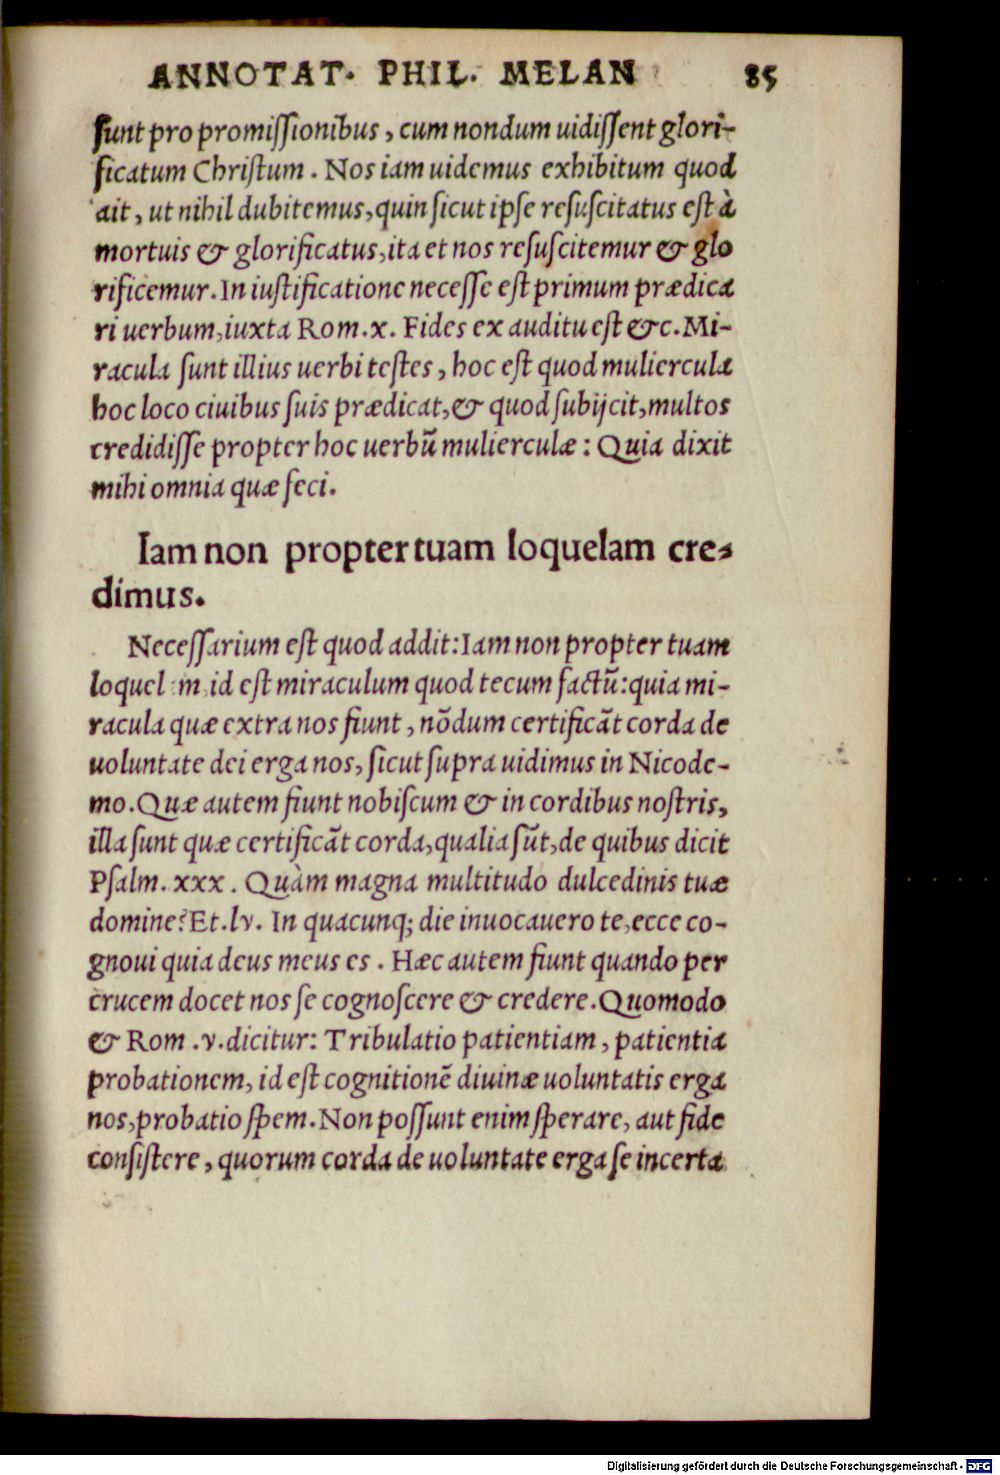 ANNOTAT. PHIL. MELAN 85
ſunt pro promiſſionibus, cum nondum uidiſſent glori-
ficatum Chriſtum. Nos iam uidemus exhibitum quod
ait, ut nihil dubitemus, quin ſicut ipſe reſuſcitatus eſt à
mortuis & glorificatus, ita et nos reſuſcitemur & glo
rificemur. In iuſtificatione neceſſe eſt primum prædica
ri uerbum, iuxta Rom. x. Fides ex auditu eſt &c. Mi-
racula ſunt illius uerbi teſtes, hoc eſt quod muliercula
hoc loco ciuibus ſuis prædicat, & quod ſubijcit, multos
credidiſſe propter hoc uerbũ mulierculæ: Quia dixit
mihi omnia quæ feci.
Iam non propter tuam loquelam cre-
dimus.
Neceſſarium eſt quod addit: Iam non propter tuam
loquel m, id eſt miraculum quod tecum factũ: quia mi-
racula quæ extra nos fiunt, nõdum certificãt corda de
uoluntate dei erga nos, ſicut ſupra uidimus in Nicode-
mo. Quæ autem fiunt nobiſcum & in cordibus noſtris,
illa ſunt quæ certificãt corda, qualia ſũt, de quibus dicit
Pſalm. xxx. Quàm magna multitudo dulcedinis tuæ
domine? Et. lv. In quacunq; die inuocauero te, ecce co-
gnoui quia deus meus es. Hæc autem fiunt quando per
crucem docet nos ſe cognoſcere & credere. Quomodo
& Rom. v. dicitur: Tribulatio patientiam, patientia
probationem, id eſt cognitionẽ diuinæ uoluntatis erga
nos, probatio ſpem. Non poſſunt enim ſperare, aut fide
conſiſtere, quorum corda de uoluntate erga ſe incerta
Digitalisierung gefördert durch die Deutsche Forschungsgemeinschaft - DFG